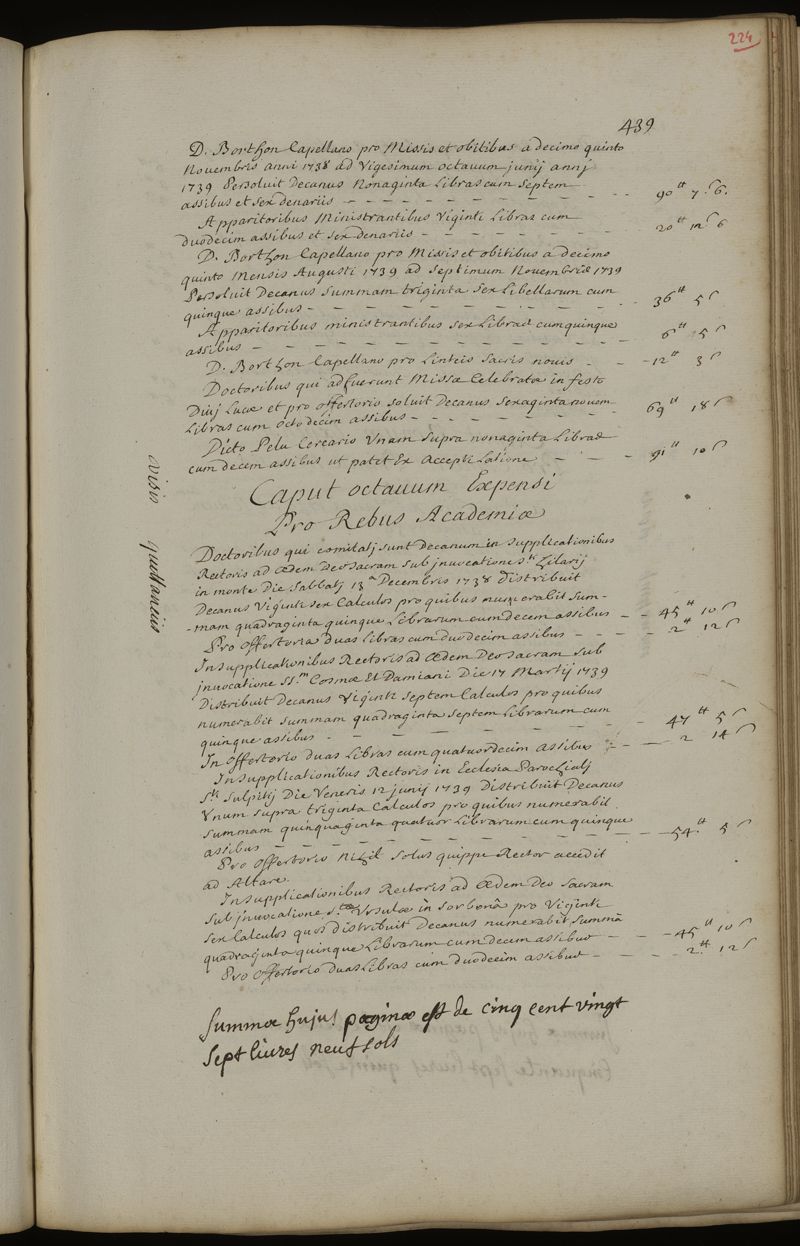 224
439
D. Borthon Capellano pro Missis et obitibus a decimo quinto
Novembris anni 1738 ad Vigesimum octavum junij annj
1739 Persoluit Decanus Nonaginta Libras cum Septem
assibus et sex denariis — 90 tt 7 s 6.
Apparitoribus Ministrantibus Viginti Libras cum
duodecim assibus et sex denariis — 20 tt 12 s 6
D. Borthon Capellano pro Missis et obitibus a decimo
quinto Mensis Augusti 1739 ad Septimum Novembris 1739
Persoluit Decanus Summam triginta Sex Libellarum cum
quinque assibus — 36 tt 5 s
Apparitoribus ministrantibus Sex Libras cum quinque
assibus — 6 tt 5 s
D. Borthon Capellano pro Linteis Sacris novis — 12 tt 3 s
Doctoribus qui adfuerunt Missæ Celebratæ in festo
Divj Lucæ et pro offertorio soluit Decanus Sexaginta novem
Libras cum octodecim assibus — 69 tt 18 s
Dicto Pelu Cereario Vnam Supra nonaginta Libras
cum decem assibus ut patet Ex Acceptilatione — 91 tt 10 s
visis quittanciis
Caput octavum Expensi
Pro Rebus Academiæ
Doctoribus qui comitatj sunt Decanum in Supplicationibus
Rectoris ad ædem Deo Sacram Sub jnvocatione Sti Hilarij
in monte Die Sabbatj 13a Decembris 1738 Distribuit
Decanus Viginti sex Calculos pro quibus numerabit Sum-
-mam quadraginta quinque Librarum cum decem assibus — 45 tt 10 s
Pro offertorio duas Libras cum duodecim assibus — 2 tt 12 s
In Supplicationibus Rectoris ad ædem Deo Sacram Sub
jnvocatione SS.m Cosmæ Et Damiani Die 17 Martij 1739
Distribuit Decanus Viginti Septem Calculos pro quibus
numerabit Summam quadraginta Septem Librarum cum
quinque assibus — 47 tt 5 s
In offertorio duas Libras cum quatuordecim assibus — 2 14 s
In Supplicationibus Rectoris in Ecclesia Parochialj
Sti Sulpitij Die Veneris 12 junij 1739 Distribuit Decanus
Vnum supra triginta Calculos pro quibus numerabit
Summam quinquaginta quatuor Librarum cum quinque
assibus — 54 tt 5 s
Pro offertorio nihil Solus quippe Rector accedit
ad Altare.
In Supplicationibus Rectoris ad ædem Deo Sacram
Sub jnvocatione S.tæ Vrsulæ in Sorbonâ pro Viginti
Sex Calculos quos distribuit Decanus numerabit Summâ
quadraginta quinque Librarum cum decem assibus — 45 tt 10 s
Pro offertorio duas Libras cum duodecim assibus — 2 tt 12 s
Summa hujus paginæ est de cinq cent vingt
sept livres neuf sols